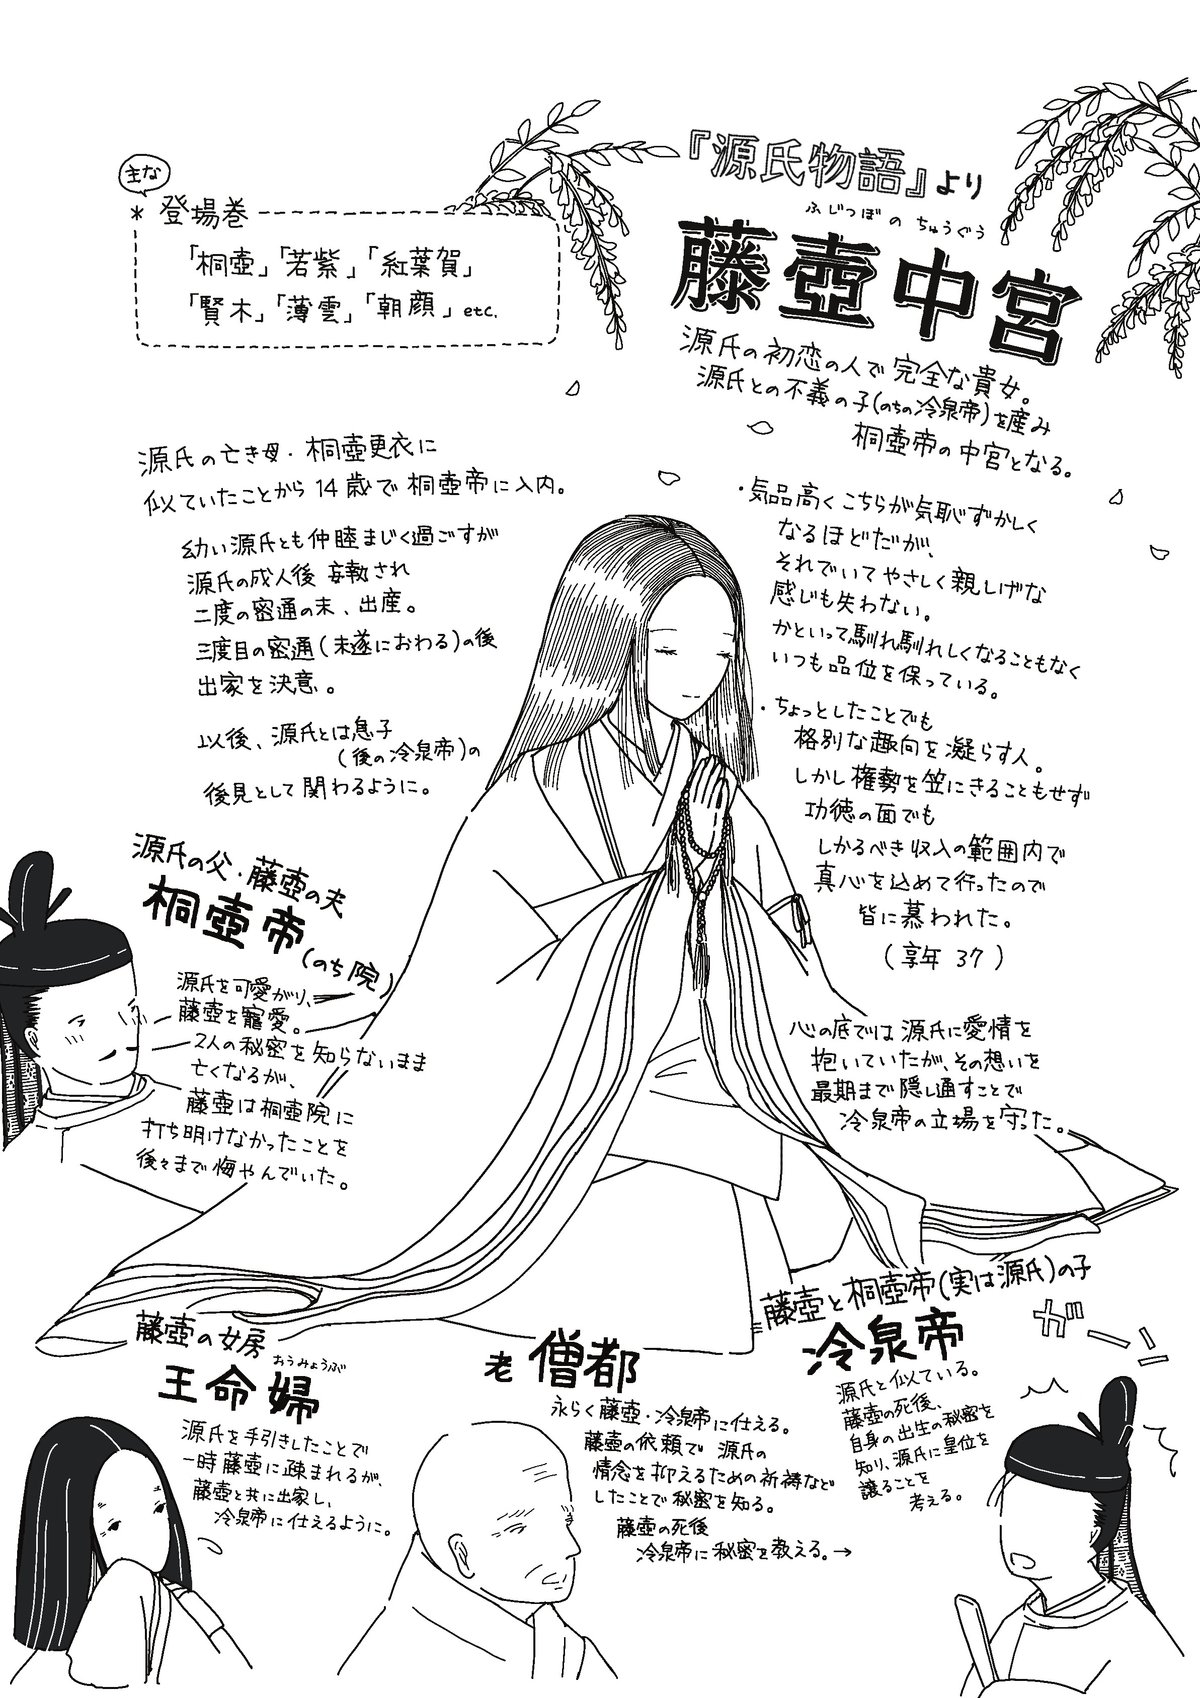 『源氏物語』より
ふじつぼの ちゅうぐう
藤壺中宮
源氏の初恋の人で完全な貴女。
源氏との不義の子(のちの冷泉帝)を産み
桐壺帝の中宮となる。
主な
* 登場巻
「桐壺」「若紫」「紅葉賀」
「賢木」「薄雲」「朝顔」etc.
源氏の亡き母・桐壺更衣に
似ていたことから14歳で桐壺帝に入内。
幼い源氏とも仲睦まじく過ごすが
源氏の成人後 妄執され
二度の密通の末、出産。
三度目の密通(未遂におわる)の後
出家を決意。
以後、源氏とは息子
(後の冷泉帝)の
後見として関わるように。
・気品高くこちらが気恥ずかしく
なるほどだが、
それでいてやさしく親しげな
感じも失わない。
かといって馴れ馴れしくなることもなく
いつも品位を保っている。
・ちょっとしたことでも
格別な趣向を凝らす人。
しかし権勢を笠にきることもせず
功徳の面でも
しかるべき収入の範囲内で
真心を込めて行ったので
皆に慕われた。
(享年 37)
心の底では源氏に愛情を
抱いていたが、その想いを
最期まで隠し通すことで
冷泉帝の立場を守った。
源氏の父・藤壺の夫
桐壺帝(のち院)
源氏を可愛がり、
藤壺を寵愛。
2人の秘密を知らないまま
亡くなるが、
藤壺は桐壺院に
打ち明けなかったことを
後々まで悔やんでいた。
藤壺の女房
おうみょうぶ
王命婦
源氏を手引きしたことで
一時藤壺に疎まれるが、
藤壺と共に出家し、
冷泉帝に仕えるように。
老 僧都
永らく藤壺・冷泉帝に仕える。
藤壺の依頼で 源氏の
情念を抑えるための祈祷など
したことで秘密を知る。
藤壺の死後
冷泉帝に秘密を教える。→
藤壺と桐壺帝(実は源氏)の子
冷泉帝
源氏と似ている。
藤壺の死後、
自身の出生の秘密を
知り、源氏に皇位を
譲ることを
考える。
ガーン